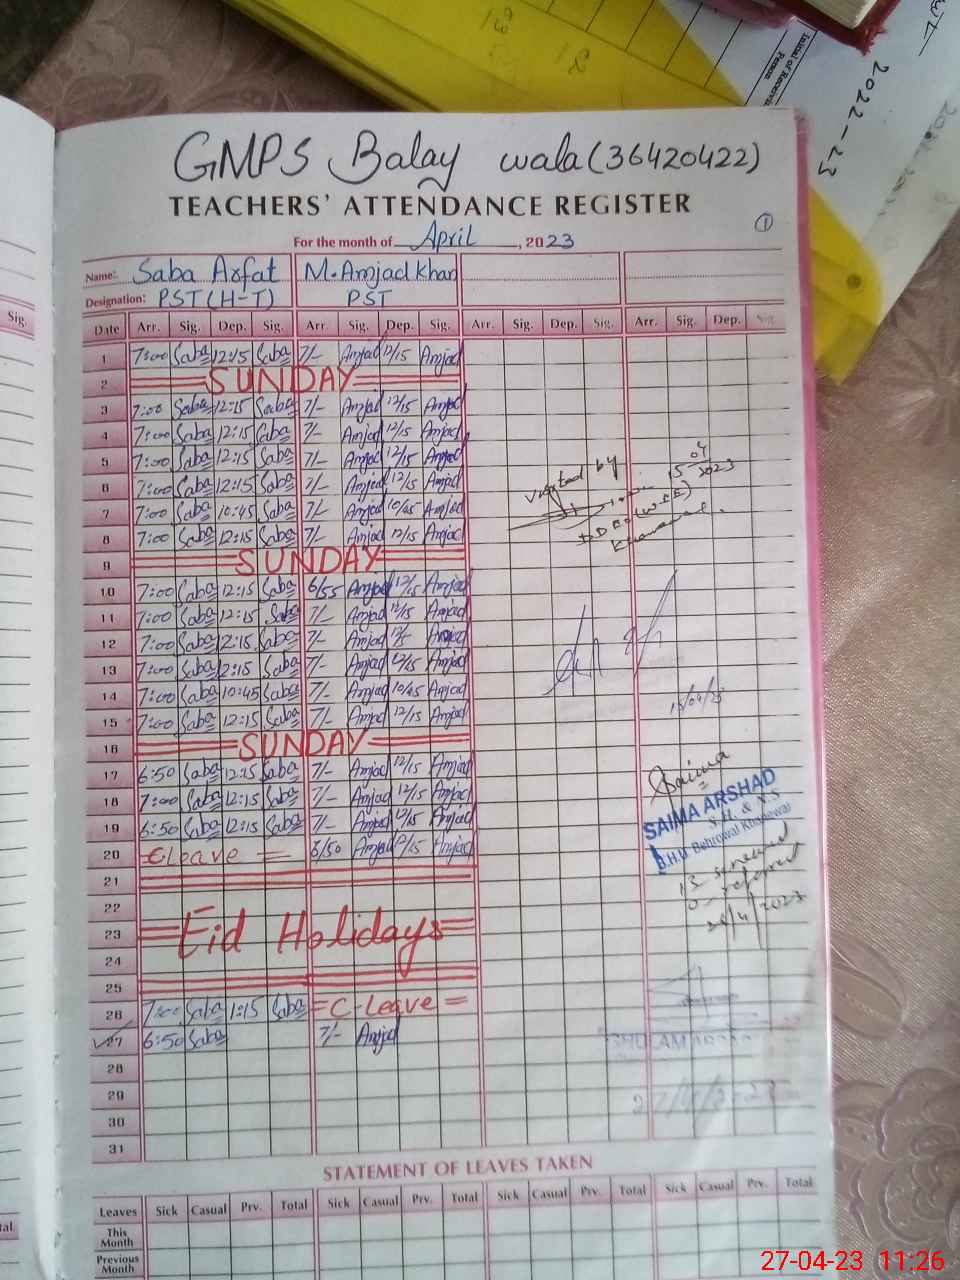 2022-23
GMPS Balay wala (36420422)
TEACHERS' ATTENDANCE REGISTER
1
For the month of April, 2023
Name: Saba Arfat M. Amjad Khan
Designation: PST (H-T) PST
Sig.
Date Arr. Sig. Dep. Sig. Arr Sig. Dep. Sig. Arr. Sig. Dep. Sig. Arr. Sig. Dep. Sig.
1 7:00 Saba 12:15 Saba 7/- Amjad 12/15 Amjad
2 SUNDAY
3 7:00 Saba 12:15 Saba 7/- Amjad 12/15 Amjad
4 7:00 Saba 12:15 Saba 7/- Amjad 12/15 Amjad
5 7:00 Saba 12:15 Saba 7/- Amjad 12/15 Amjad
6 7:00 Saba 12:15 Saba 7/- Amjad 12/15 Amjad
7 7:00 Saba 10:45 Saba 7/- Amjad 10/45 Amjad
8 7:00 Saba 12:15 Saba 7/- Amjad 12/15 Amjad
9 SUNDAY
10 7:00 Saba 12:15 Saba 6/55 Amjad 12/15 Amjad
11 7:00 Saba 12:15 Saba 7/- Amjad 12/15 Amjad
12 7:00 Saba 12:15 Saba 7/- Amjad Amjad
13 7:00 Saba 12:15 Saba 7/- Amjad 12/15 Amjad
14 7:00 Saba 10:45 Saba 7/- Amjad 10/45 Amjad
15 7:00 Saba 12:15 Saba 7/- Amjad 12/15 Amjad
16 SUNDAY
17 6:50 Saba 12:15 Saba 7/- Amjad 12/15 Amjad
18 7:00 Saba 12:15 Saba 7/- Amjad 12/15 Amjad
19 6:50 Saba 12:15 Saba 7/- Amjad 12/15 Amjad
20 C Leave 6/50 Amjad 12/15 Amjad
21
22
23 Eid Holidays
24
25
26 7:00 Saba 1:15 Saba C-Leave
27 6:50 Saba 7/- Amjad
28
29
30
31
Visited by
15 04 2023
Khanewal.
15/04/23
Saima
SAIMA ARSHAD
S.H. & N.S
B.H.U Behrowal Khanewal
13 screened
0 referred
26/4/2023
27/4/2023
STATEMENT OF LEAVES TAKEN
Leaves Sick Casual Prv. Total Sick Casual Prv. Total Sick Casual Prv. Total Sick Casual Prv. Total
This Month
Previous Month
27-04-23 11:26